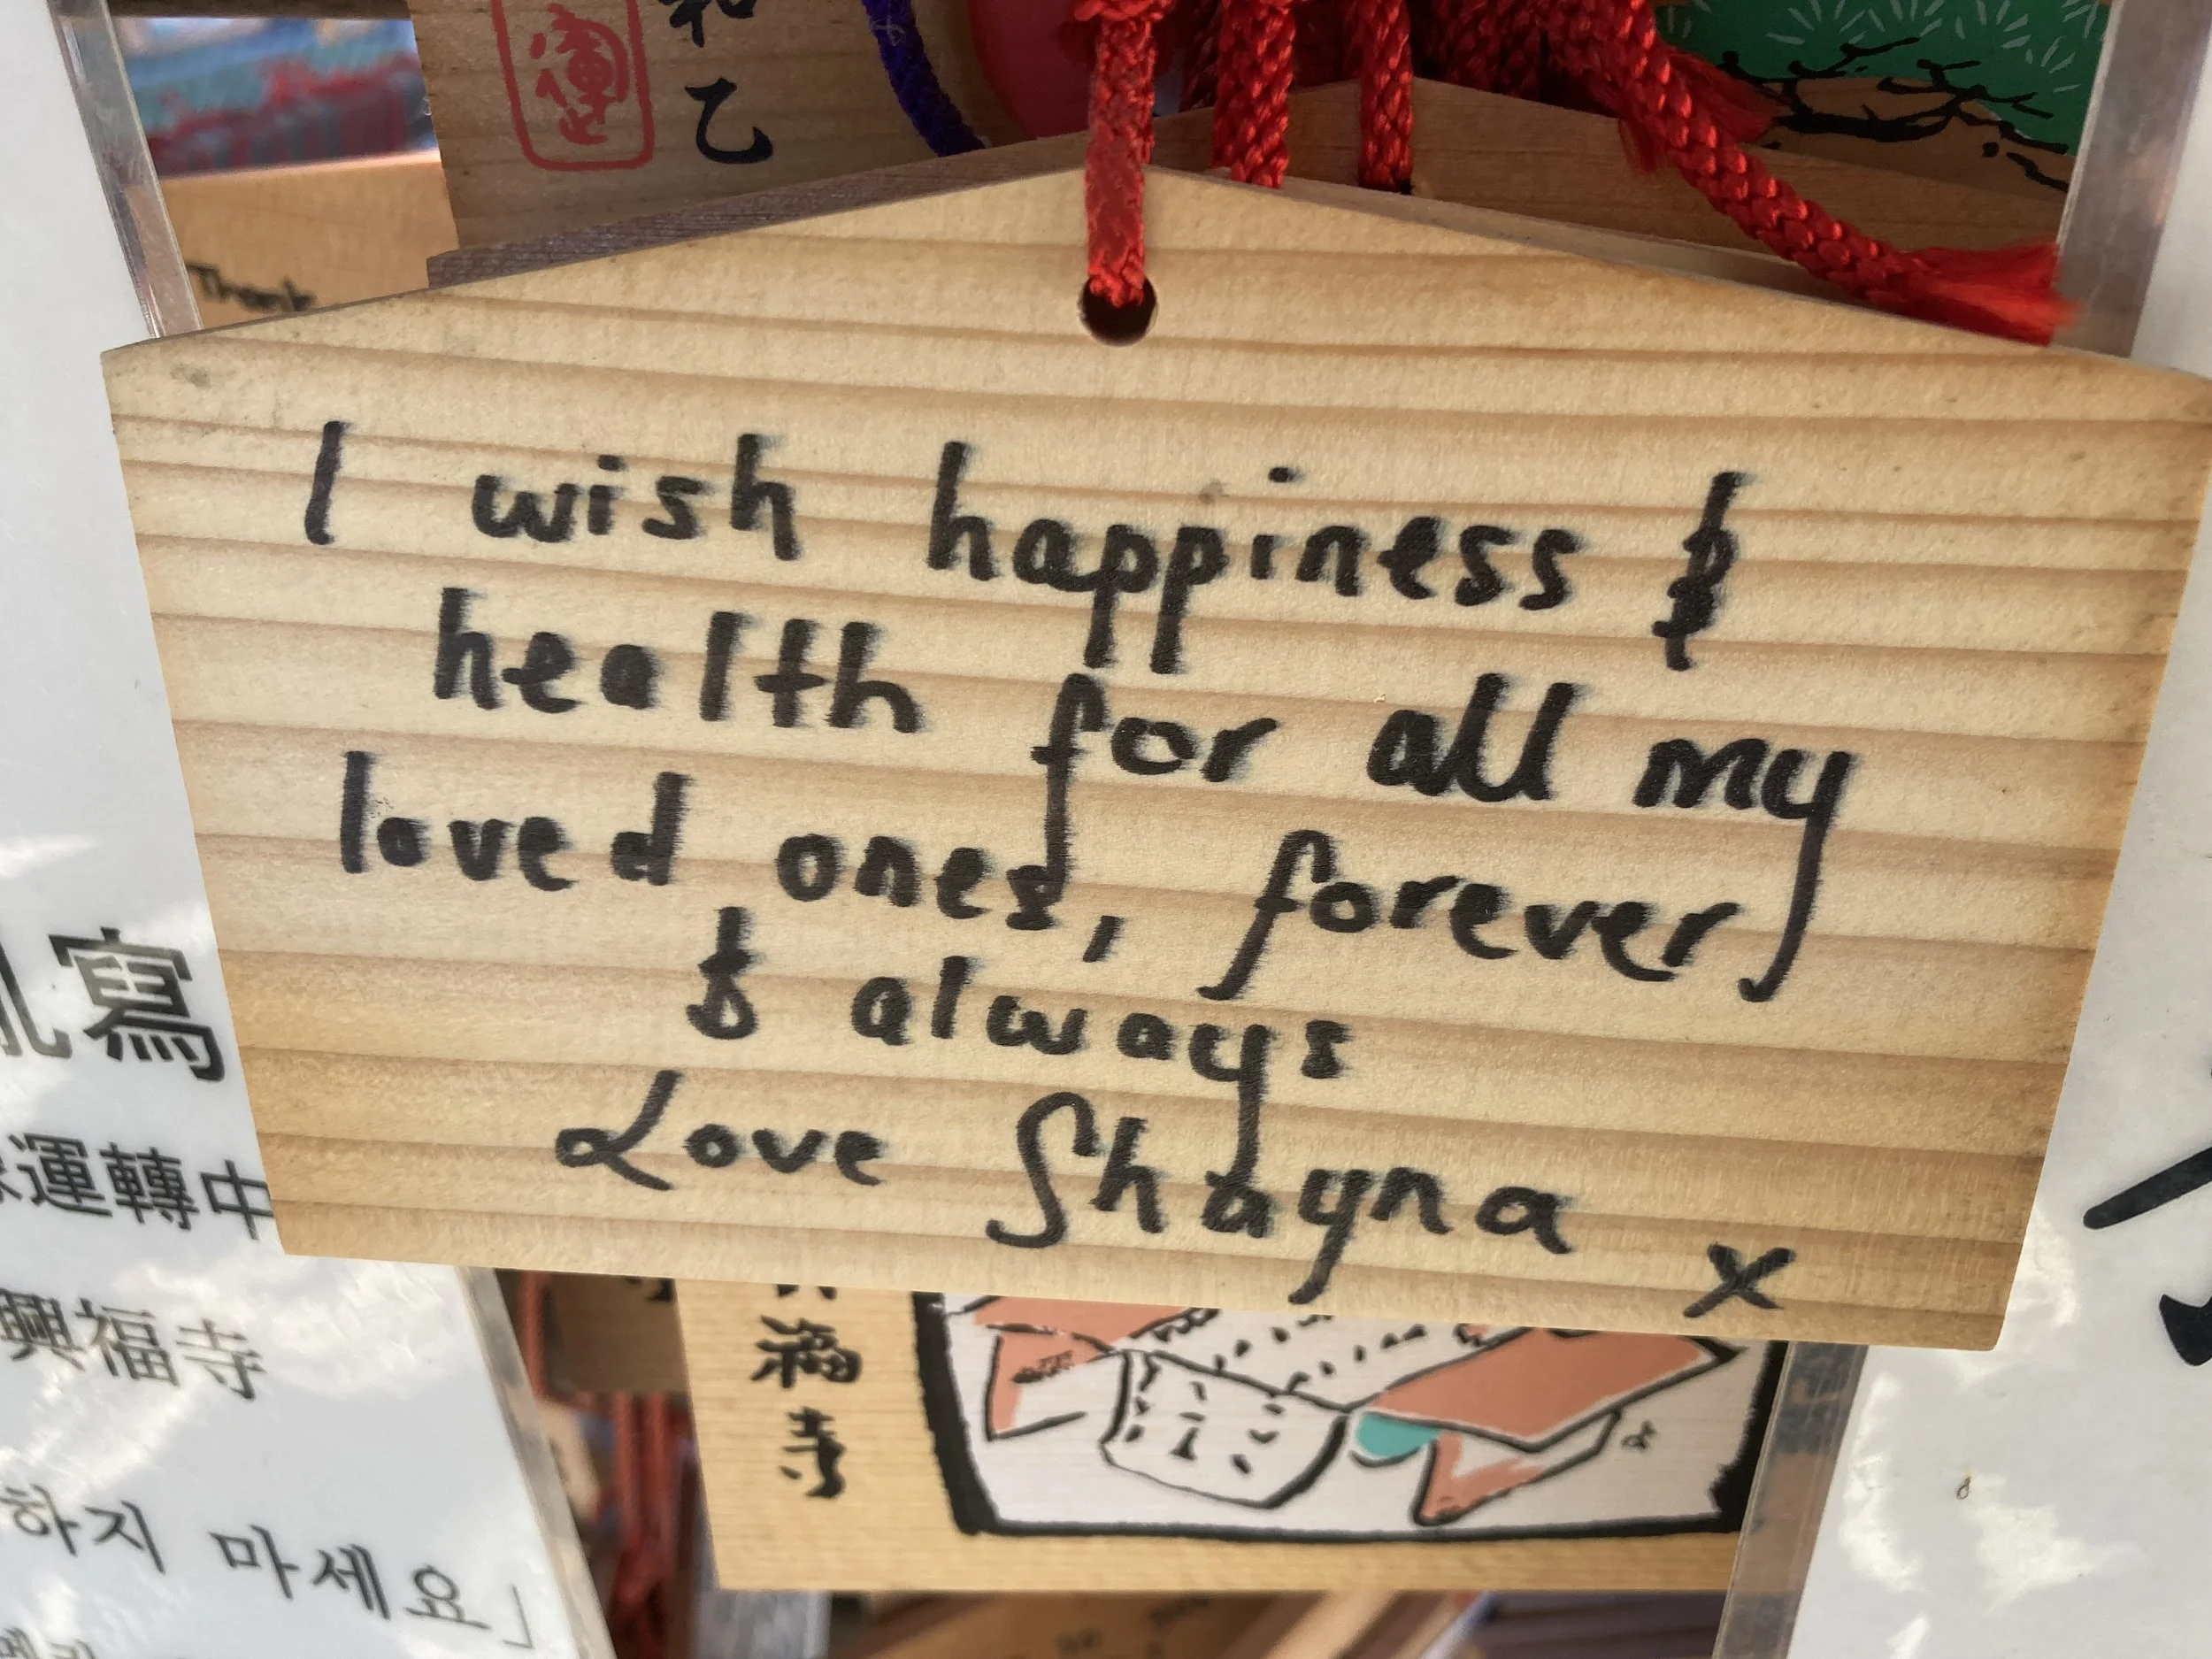 乙
Thank
I wish happiness &
health for all my
loved ones, forever
& always
Love Shayna x
寫
運轉中
興福寺
하지 마세요」
福寺